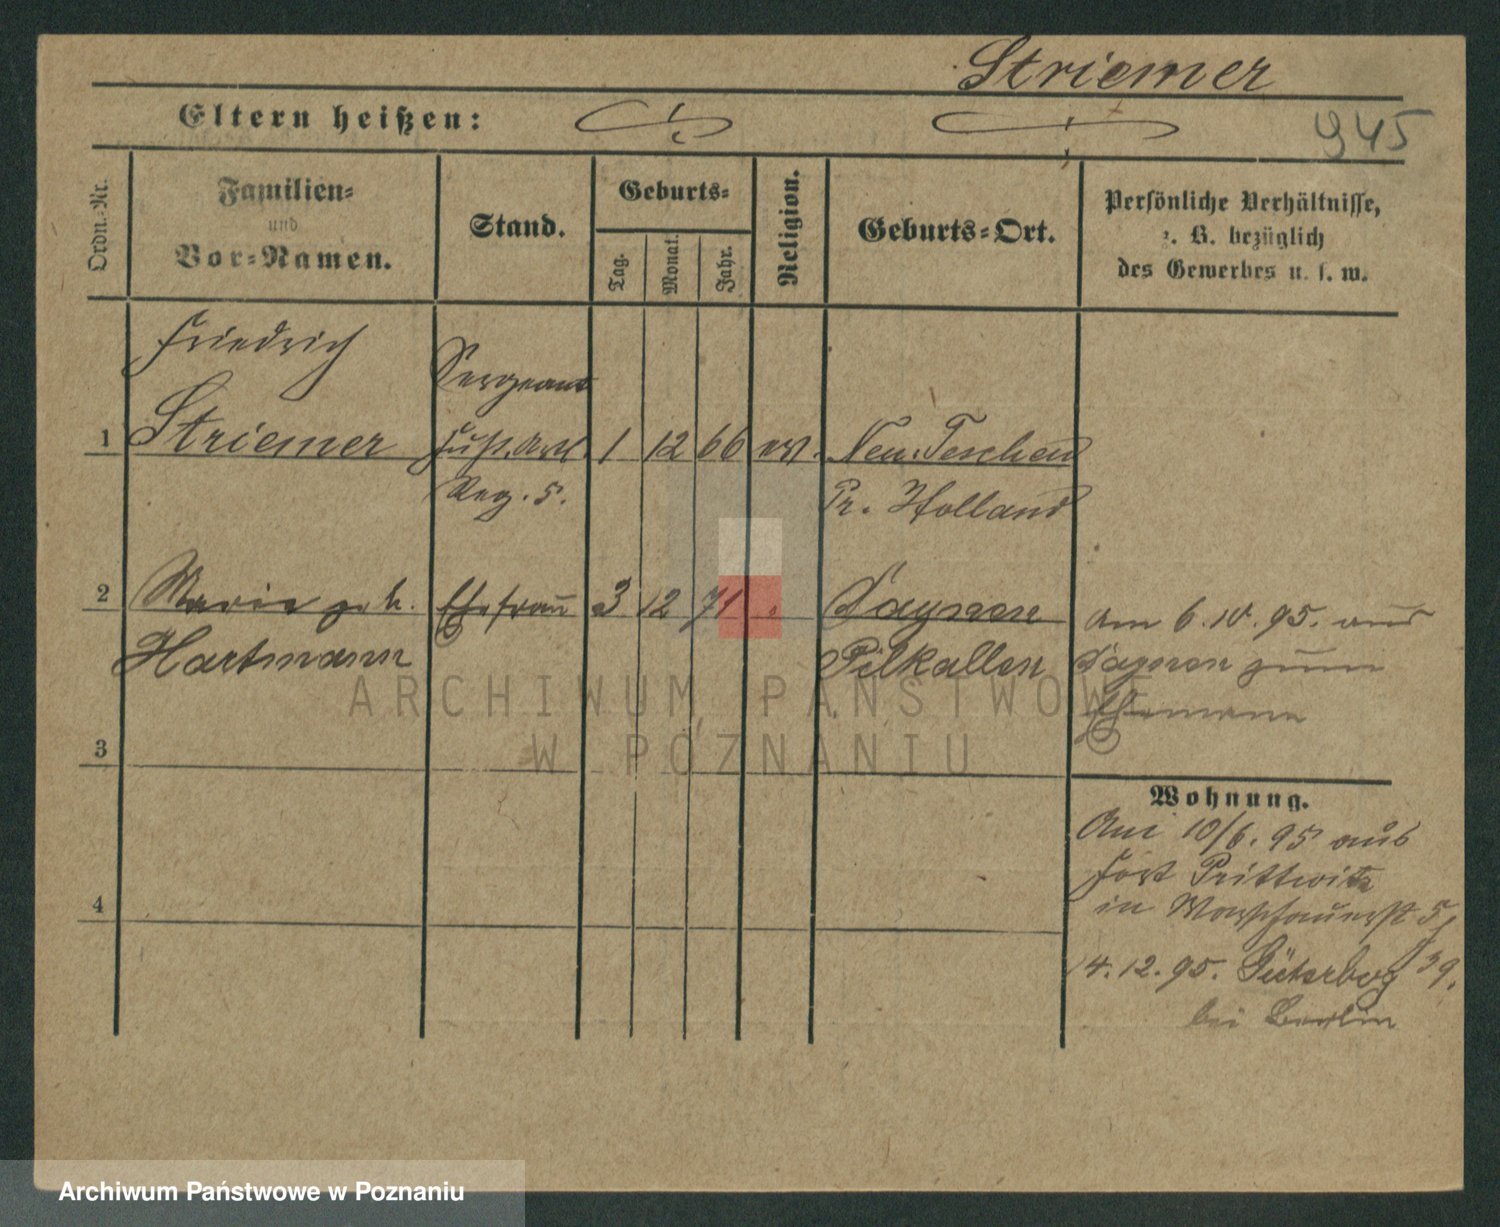 Striemer
Eltern heißen:
945
Ordn.-Nr.
Familien-
und
Vor-Namen.
Stand.
Geburts-
Tag.
Monat.
Jahr.
Religion.
Geburts-Ort.
Persönliche Verhältnisse,
z. B. bezüglich
des Gewerbes u. s. w.
Friedrich
Sergeant
1 Striemer Fuß. Artl. 1 12 66 ev. Neu Teschen
Reg. 5.
Pr. Holland
2 Marie geb. Ehefrau 3 12 71 "
Hartmann
Pillkallen
Am 6.10.95. aus
zum
Ehemann
3
Wohnung.
Am 10/6.95 aus
Fort Prittwitz
in Warschauerst 5,
4
14.12.95. Güterbog /39.
bei Berlin
ARCHIWUM PAŃSTWOWE
W POZNANIU
Archiwum Państwowe w Poznaniu